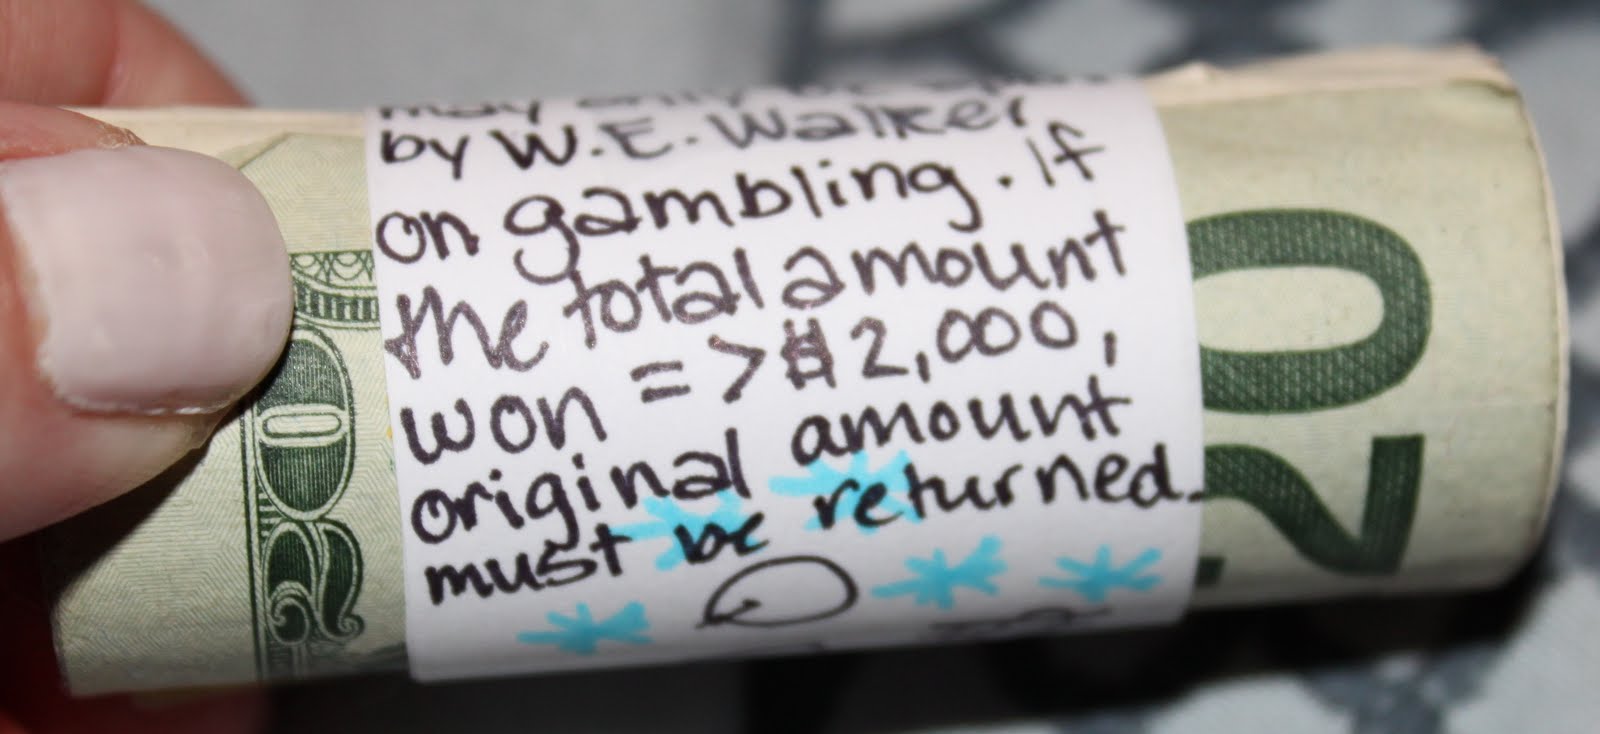 may only be
by W.E. Walker
on gambling. If
the total amount
won => $2,000,
original amount
must be returned.
20
20